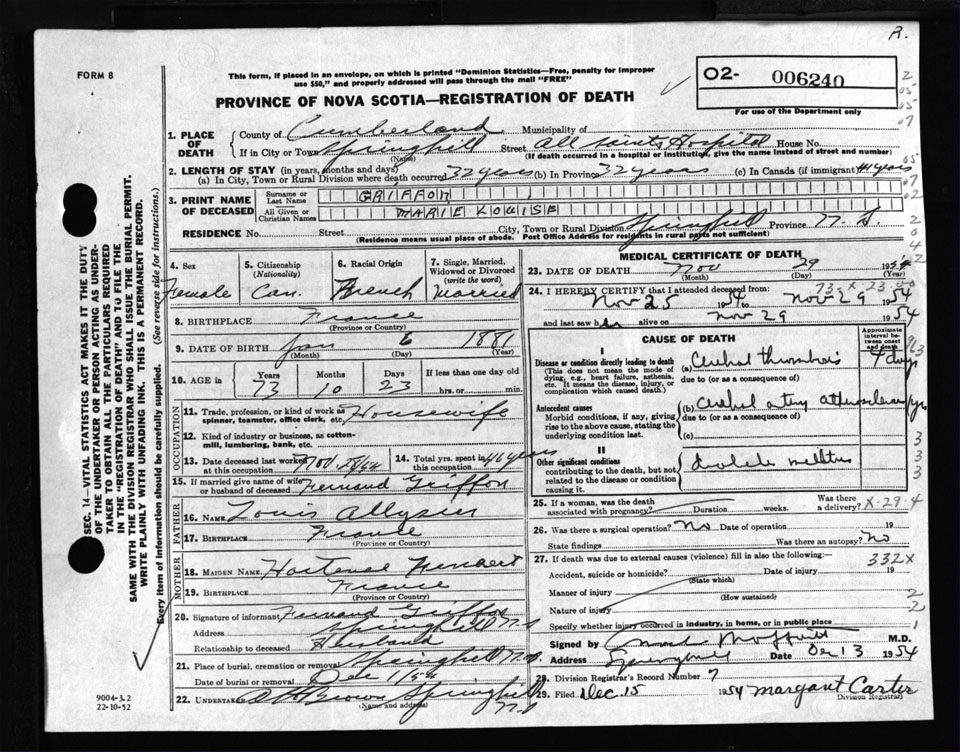 R.
FORM 8
This form, if placed in an envelope, on which is printed "Dominion Statistics—Free, penalty for improper
use $50," and properly addressed will pass through the mail "FREE"
O2- 006240
For use of the Department only
PROVINCE OF NOVA SCOTIA—REGISTRATION OF DEATH
1. PLACE OF DEATH
County of Cumberland Municipality of
If in City or Town Springhill Street All Saints Hospital House No.
(Name) (If death occurred in a hospital or institution, give the name instead of street and number)
2. LENGTH OF STAY (in years, months and days)
(a) In City, Town or Rural Division where death occurred 32 years (b) In Province 32 years (c) In Canada (if immigrant) 44 years
3. PRINT NAME OF DECEASED
Surname or Last Name GRIFFON
All Given or Christian Names MARIE LOUISE
RESIDENCE No. Street City, Town or Rural Division Springhill Province N.S.
(Residence means usual place of abode. Post Office Address for residents in rural parts not sufficient)
4. Sex Female
5. Citizenship (Nationality) Can.
6. Racial Origin French
7. Single, Married, Widowed or Divorced (write the word) Married
8. BIRTHPLACE France
(Province or Country)
9. DATE OF BIRTH Jan 6 1881
(Month) (Day) (Year)
10. AGE in Years 73 Months 10 Days 23 If less than one day old hrs. or min.
OCCUPATION
11. Trade, profession, or kind of work as spinner, teamster, office clerk, etc. Housewife
12. Kind of industry or business, as cotton-mill, lumbering, bank, etc.
13. Date deceased last worked at this occupation Nov 25/54 14. Total yrs. spent in this occupation 46 years
15. If married give name of wife or husband of deceased Fernand Griffon
FATHER
16. NAME Louis
17. BIRTHPLACE France
(Province or Country)
MOTHER
18. MAIDEN NAME Hortense
19. BIRTHPLACE France
(Province or Country)
20. Signature of informant Fernand Griffon
Address Springhill N.S
Relationship to deceased Husband
21. Place of burial, cremation or removal Springhill N.S.
Dec 1/54
22. UNDERTAKER Brown Springhill N.S
(Name and address)
MEDICAL CERTIFICATE OF DEATH
23. DATE OF DEATH Nov 29 1954
(Month) (Day)
24. I HEREBY CERTIFY that I attended deceased from:
Nov 25 1954 to Nov 29 1954
and last saw her alive on Nov 29 1954
CAUSE OF DEATH
Approximate interval between onset and death
Disease or condition directly leading to death
(This does not mean the mode of dying, e.g., heart failure, asthenia, etc. It means the disease, injury, or complication which caused death.)
(a) Cerebral thrombosis 4 days
due to (or as a consequence of)
Antecedent causes
Morbid conditions, if any, giving rise to the above cause, stating the underlying condition last.
(b) Cerebral artery
due to (or as a consequence of)
(c)
II
Other significant conditions
contributing to the death, but not related to the disease or condition causing it.
diabetes mellitus
25. If a woman, was the death associated with pregnancy? Duration weeks. Was there a delivery? X-29-4
26. Was there a surgical operation? No Date of operation 19
State findings Was there an autopsy? No
27. If death was due to external causes (violence) fill in also the following:— 332X
Accident, suicide or homicide? Date of injury 19
(State which)
Manner of injury
(How sustained)
Nature of injury
Specify whether injury occurred in industry, in home, or in public place
Signed by M.D.
Address Springhill Date Dec 13 1954
28. Division Registrar's Record Number 7
29. Filed Dec. 15 1954 Margaret Carter
Division Registrar)
SEC. 14—VITAL STATISTICS ACT MAKES IT THE DUTY
OF THE UNDERTAKER OR PERSON ACTING AS UNDER-
TAKER TO OBTAIN ALL THE PARTICULARS REQUIRED
IN THE "REGISTRATION OF DEATH" AND TO FILE THE
SAME WITH THE DIVISION REGISTRAR WHO SHALL ISSUE THE BURIAL PERMIT.
WRITE PLAINLY WITH UNFADING INK. THIS IS A PERMANENT RECORD.
Every item of information should be carefully supplied. (See reverse side for instructions.)
9004-3.2
22-10-52